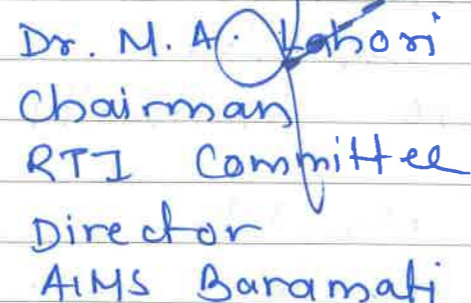 Dr. M. A. Lahori
Chairman
RTI Committee
Director
AIMS Baramati